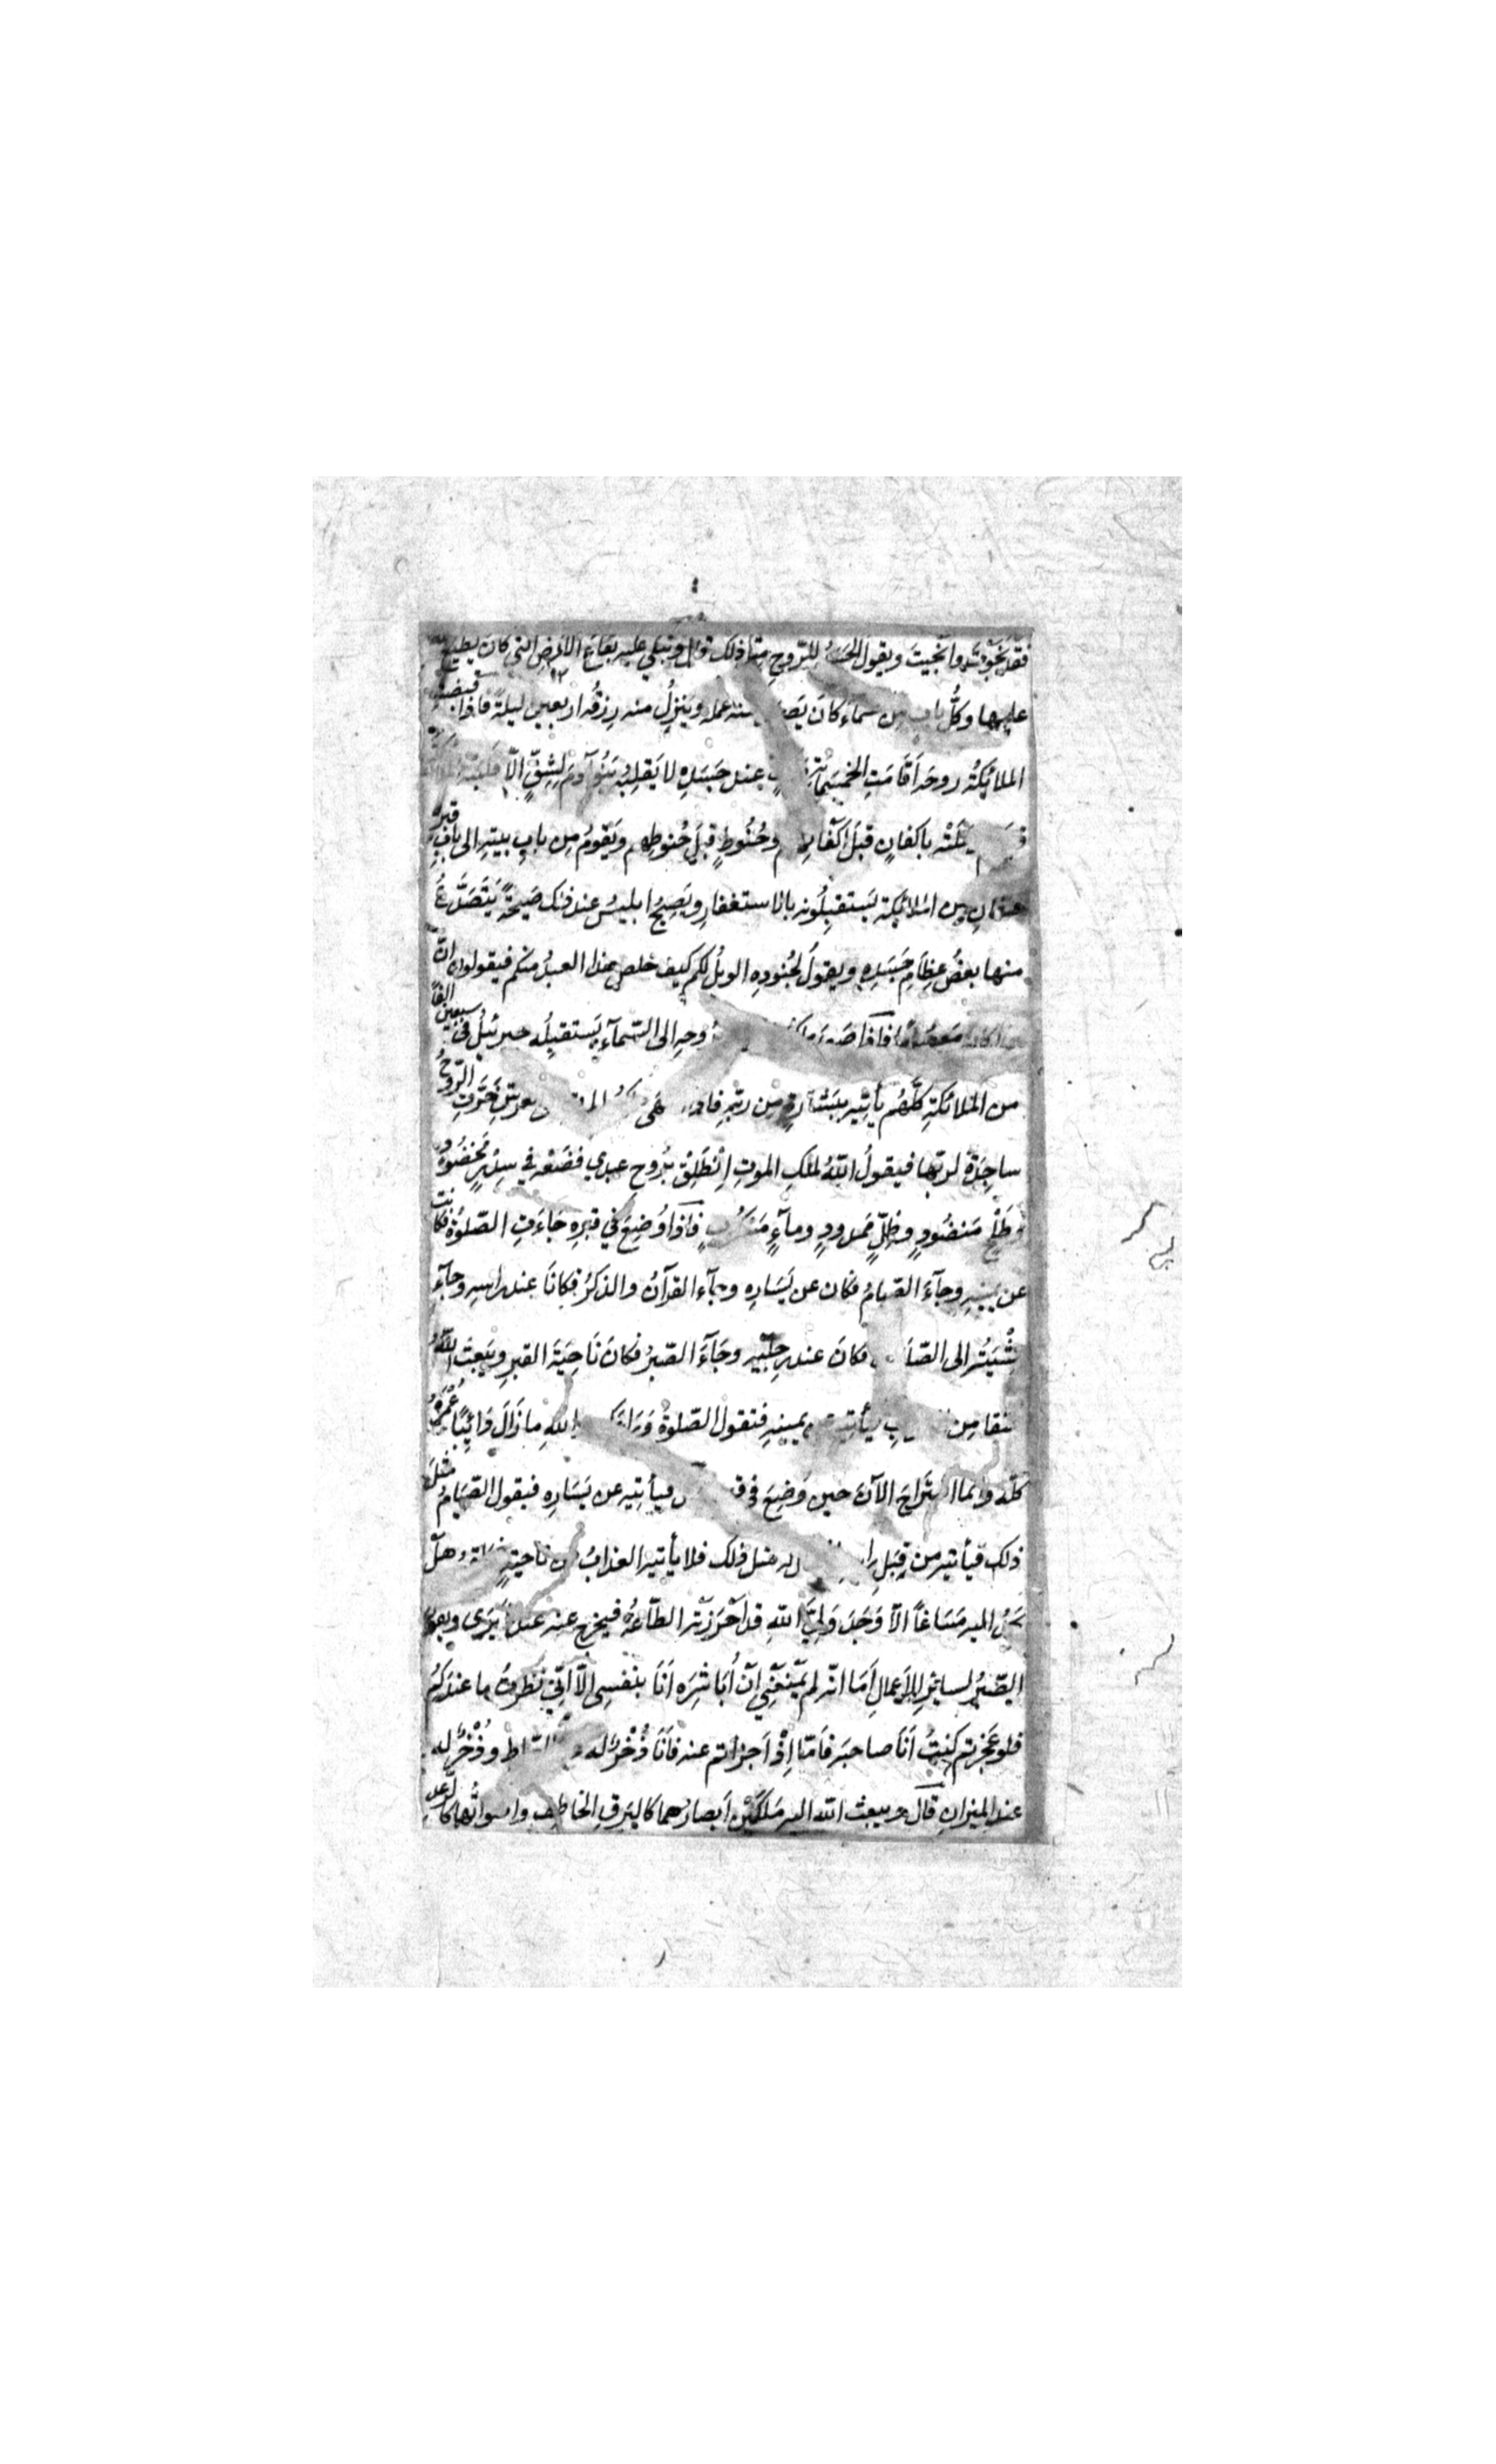 فقد نَجَوْتَ وانجيتَ ويقول الجسدُ للرّوحِ مثلَ ذلك قال وتبكي عليه بقاع الارضِ التي كان يطيع اللّٰه
عليها وكُلُّ بابٍ من سماءٍ كانَ يَصعدُ منه عمله ويَنزِلُ منه رِزقُه اربعين ليلةً فاذا قبضت
الملائِكةُ روحَه اَقَامَتِ الخمسمأئة عند جَسَدِهِ لا يَقلِبُه بَنُوآدمَ لِشِقٍّ الّا قَلَبَتْه الملائكة
باكفانٍ قبلَ اكفانهم وحُنُوطٍ قبلَ حُنوطِهم ويَقومُ مِن بابِ بيتِه الى بابِ قبرِه
من الملائِكة يَستقبِلُونه بالاستغفارِ ويَصِيحُ ابليسُ عند ذلك صَيحَةً يَتَصَدَّعُ
منها بعضُ عِظامِ جَسَدِه ويقولُ لجُنودِه الويلُ لكم كيف خلص هذا العبدُ منكم فيقولون انّ
هذا كان مَعصُومًا فاذا صَعِدَ مَلك الموت بروحِه الى السَّمآءِ يَستقبِلُه جبرئيلُ في سبعين الفًا
من الملائكةِ كُلّهُم يأتِيه ببشارةٍ مِن رَبِّه فاذا انتهى ملكُ الموتِ الى العرشِ خَرَّتِ الرّوحُ
ساجِدَةً لربّها فيقولُ اللّٰهُ لملكِ الموتِ اِنْطَلِقْ بِرُوحِ عبدي فضَعْه في سِدْرٍ مَخضُودٍ
وطَلْحٍ مَنضُودٍ وظِلٍّ مَمدودٍ ومآءٍ مَسْكُوبٍ فاذا وُضِعَ في قبرِه جَاءَتِ الصّلوةُ فكانت
عن يمينِه وجآءَ الصّيامُ فكان عن يَسَارِه وجآءَ القرآنُ والذّكرُ فكانَا عند راسِه وجآءَ
مَشْيُه الى الصّلوة فكانَ عند رِجلَيْه وجَآءَ الصّبرُ فكانَ نَاحِيَةَ القبرِ ويَبعثُ اللّٰهُ
عنقا مِن العذابِ فيأتِيه عن يمينِه فتقول الصّلوةُ وَرَاءَك واللّٰهِ ما زَالَ دَائِبًا عُمْرَهُ
كلَّه وانّما استَرَاحَ الآنَ حين وُضِعَ في قبره فيأتِيه عن يَسَارِه فيقول الصّيَامُ مثلَ
ذلك فيأتيه من قِبَلِ راسِه فيقال له مثل ذلك فلا يأتيه العذابُ من ناحيةٍ هل
يجدُ اليه مَسَاغًا الّا وَجَدَ وَلِيَّ اللّٰهِ قد اَحْرَزَتْه الطّاعةُ فيخرج عنه عند ما يَرَى ويقول
الصّبرُ لسائِرِ الاَعمالِ اَمَا انّه لم يَمْنَعْنِي اَنْ اُبَاشِرَه اَنَا بنفسِي الّا اِنّي نظرتُ ما عندَكُم
فلو عَجَزتم كنتُ اَنَا صاحبَه فاَمّا اِذْ اَجزاتم عنه فاَنَا ذُخْرٌ له عند الصّراط وذُخْرٌ له
عند الميزانِ قال ويبعث اللّٰه اليه مَلَكَيْنِ اَبصارُهما كالبَرقِ الخاطِفِ واصواتُهما كالرّعدِ